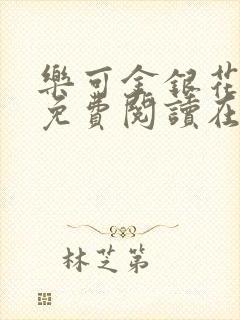 樂可金銀花
免費閱讀在
林芝第